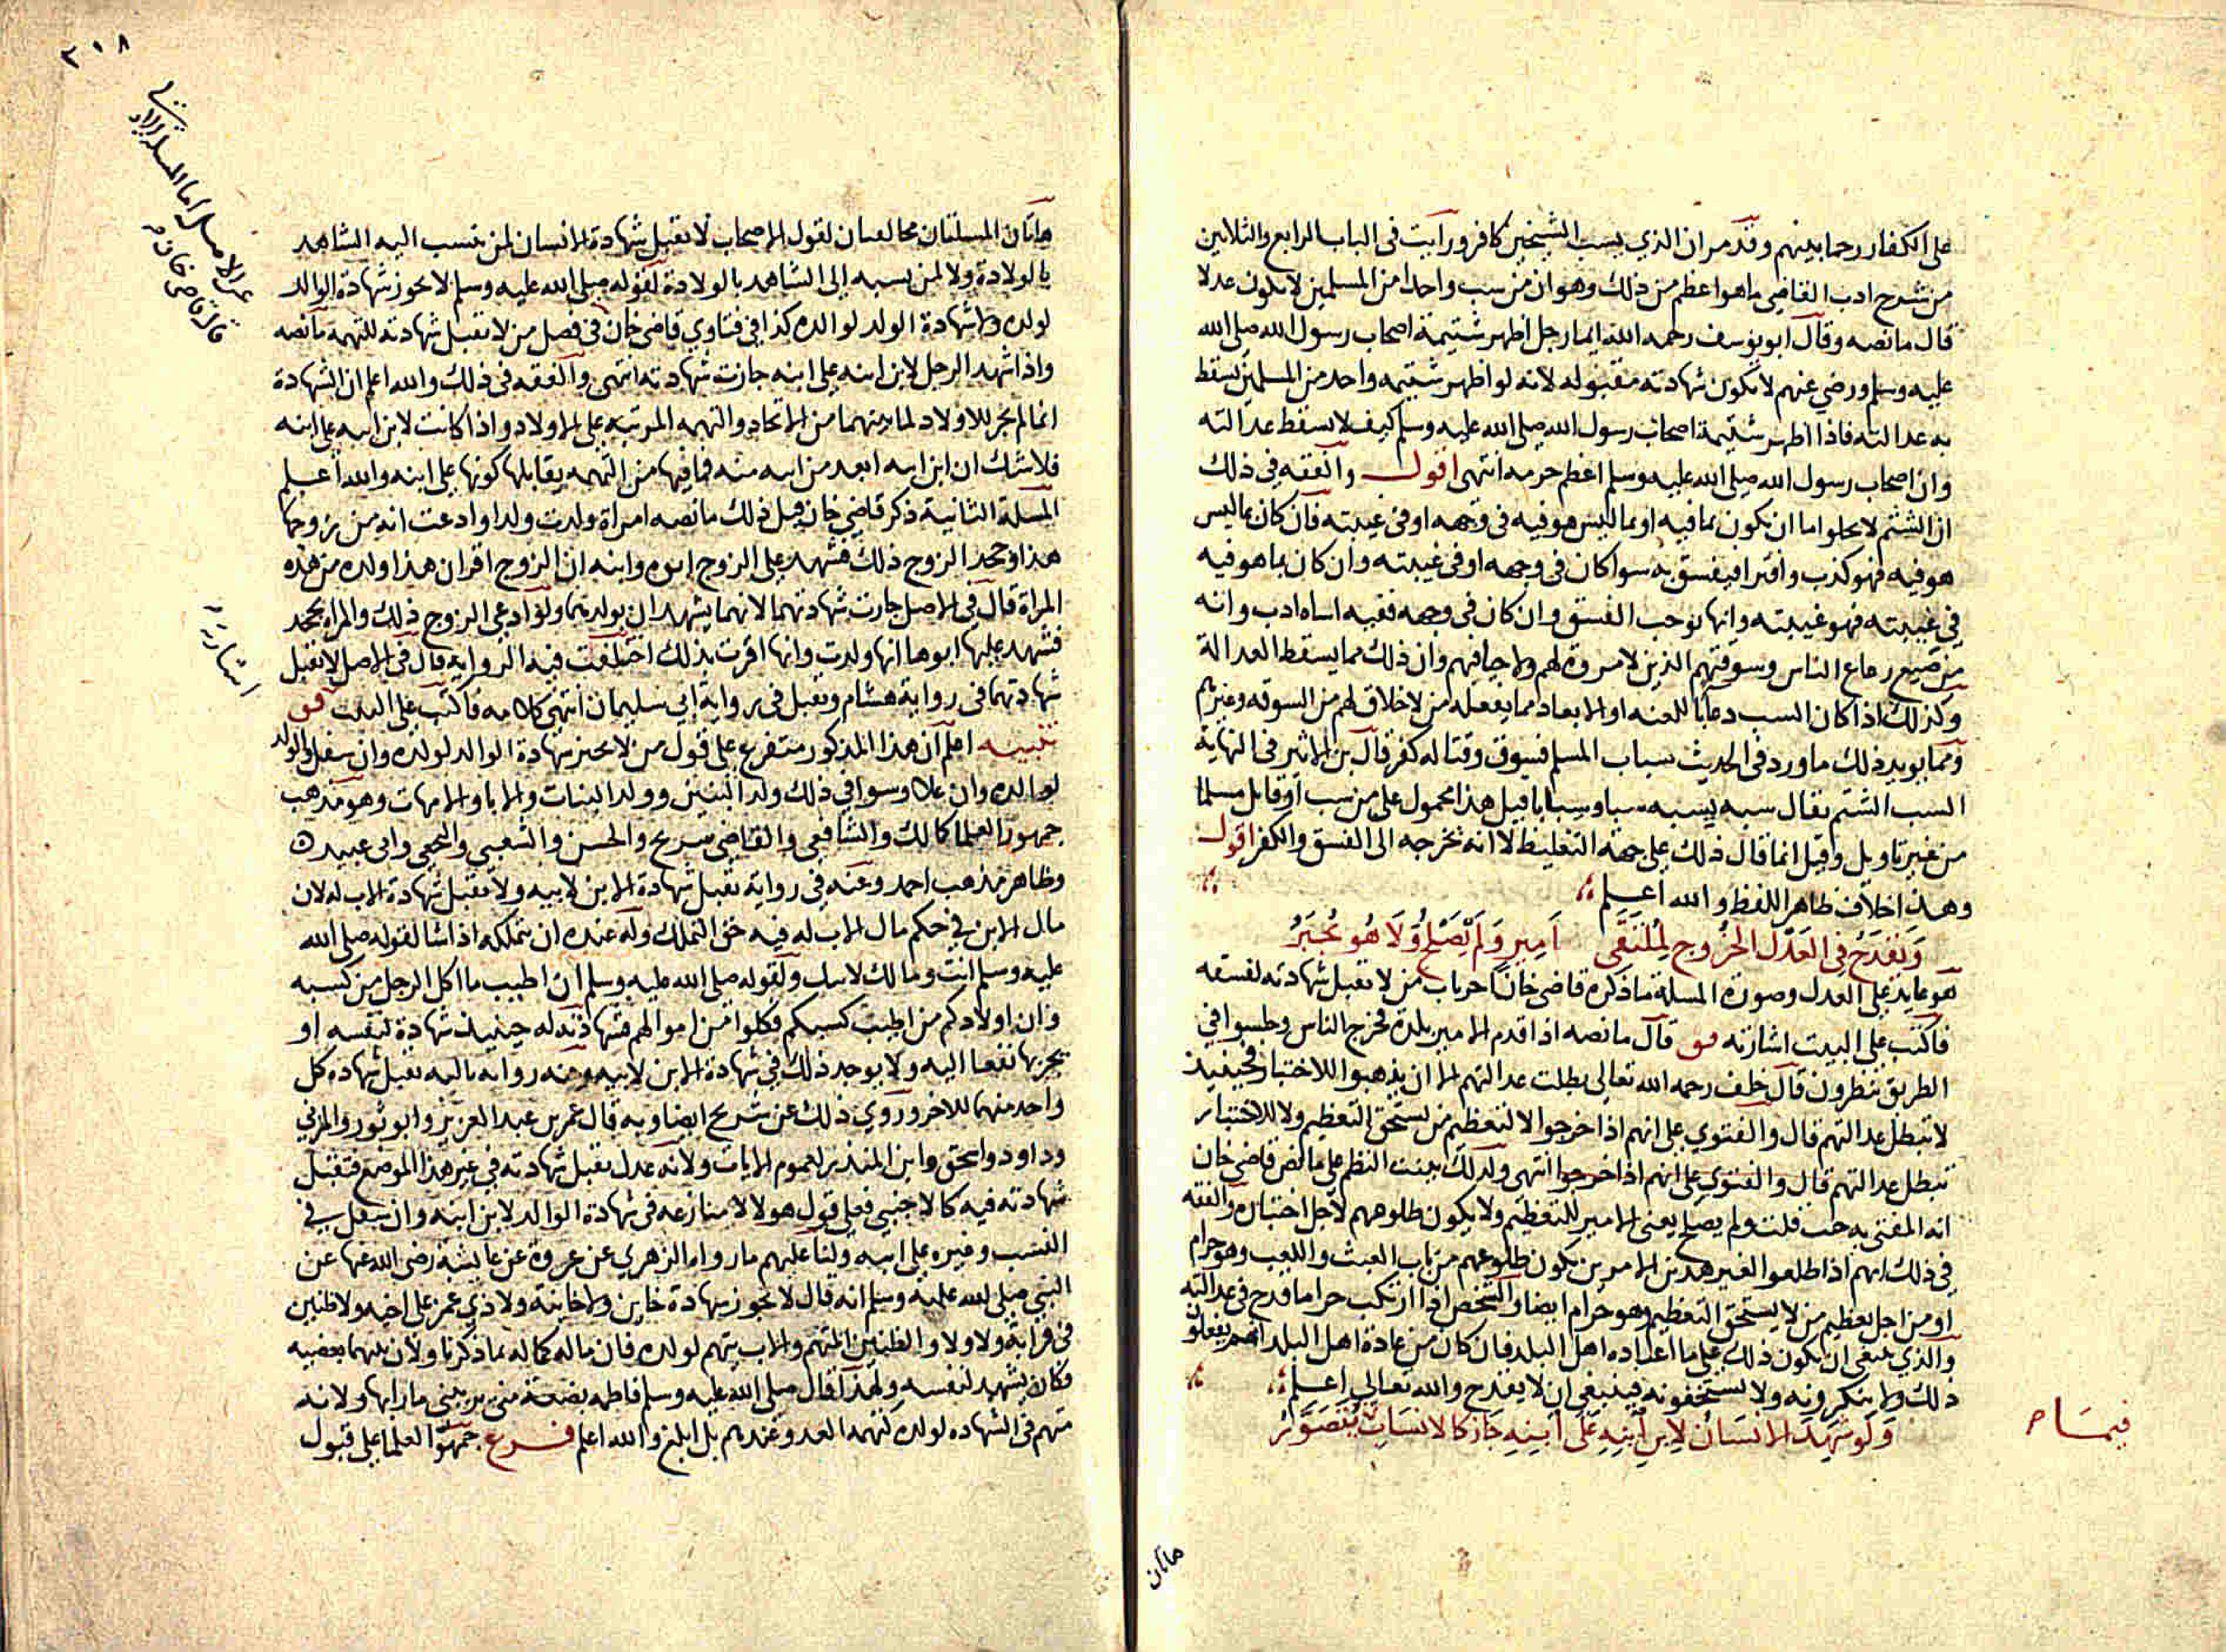 على الكفار رحما بينهم وقد مر ان الذي يسب الشيخين كافر ورايت في الباب الرابع والثلاثين
من شرح ادب القاضي ما هو اعظم من ذلك وهو ان من سب واحدا من المسلمين لا يكون عدلا
قال ما نصه وقال ابو يوسف رحمه الله ايما رجل اظهر شتيمة اصحاب رسول الله صلى الله
عليه وسلم ورضي عنهم لا تكون شهادته مقبوله لانه لو اظهر شتيمه واحد من المسلمين يسقط
به عدالته فاذا اظهر شتيمة اصحاب رسول الله صلى الله عليه وسلم كيف لا يسقط عدالته
وان اصحاب رسول الله صلى الله عليه وسلم اعظم حرمه انتهى اقول والفقه في ذلك
ان الشتم لا يخلوا اما ان يكون بما فيه او بما ليس هو فيه في وجهه او في غيبته فان كان بما ليس
هو فيه فهو كذب وافترا فيفسق به سوا كان في وجهه او في غيبته وان كان بما هو فيه
في غيبته فهو غيبته وانها توجب الفسق وان كان في وجهه ففيه اساه ادب وانه
من صنيع رعاع الناس وسوقتهم الذين لا مروة لهم ولا حيا فيهم وان ذلك مما يسقط العدالة
وكذلك اذا كان السب دعا باللعنه او الابعاد مما يفعله من لا خلاق لهم من السوقه وغيرهم
ومما يويد ذلك ما ورد في الحديث سباب المسلم فسوق وقتاله كفر قال بن الاثير في النهاية
السب الشتم يقال سبه يسبه سبا وسبابا قيل هذا محمول على من سب او قاتل مسلما
من غير تاويل وقيل انما قال ذلك على جهة التغليظ لا انه تخرجه الى الفسق والكفر اقول
وهذا خلاف ظاهر اللفظ والله اعلم
وَيَقدَحُ في العَدْل الخُروج لِمُلتَقَى اَمِير وَلَم يَصْلح وَلَا هُو يُخبَرُ
هو عايد على العدل وصورة المسلة ما ذكره قاضي خان اخر باب من لا تقبل شهادته لفسقه
فاكتب على البيت اشارته فق قال ما نصه اذا قدم الامير بلدة فخرج الناس وجلسوا في
الطريق ينظرون قال خلف رحمه الله تعالى بطلت عدالتهم الا ان يذهبوا للاختبار فحينيذ
لا تبطل عدالتهم قال والفتوي على انهم اذا خرجوا لا لتعظيم من يستحق التعظيم ولا للاختبار
تبطل عدالتهم قال والفتوي على انهم اذا خرجوا انتهى ولذلك بينت النظم على ما لنص قاضي خان
انه المفتى به حيث قلت ولم يصلح يعنى الامير للتعظيم ولا يكون طلوعهم لاجل اختباره والفقه
في ذلك انهم اذا طلعوا لغير هذين الامرين يكون طلوعهم من باب العبث واللعب وهو حرام
او من اجل تعظيم من لا يستحق التعظيم وهو حرام ايضا والشخص اذا ارتكب حراما قدح في عدالته
والذي ينبغى ان يكون ذلك على ما اعتاده اهل البلد فان كان من عادة اهل البلد انهم يفعلون
ذلك ولا ينكرونه ولا يستخفونه فينبغي ان لا يقدح والله تعالى اعلم
وَلَو شَهِدَ الانسَانُ لِابنِ اَبنِهِ عَلَى اَبنِهِ جَاز كالانسَابِ يُتَصَوَّرُ
هاتان
هاتان المسلتان مخالفتان لقول الاصحاب لا تقبل شهادة الانسان لمن ينسب اليه الشاهد
بالولادة ولا لمن ينسبه الى الشاهد بالولادة لقوله صلى الله عليه وسلم لا تجوز شهادة الوالد
لولده ولا شهادة الولد لوالده كذا في فتاوي قاضي خان في فصل من لا تقبل شهادته للتهمه ما نصه
واذا شهد الرجل لابن ابنه على ابنه جازت شهادته انتهى والفقه في ذلك والله اعلم ان الشهادة
انما لم تجز للاولاد لما بينهما من الاتحاد والتهمه المرتبه على الاولاد واذا كانت لابن ابنه على ابنه
فلا شك ان ابن ابنه ابعد من ابنه منه فما فيها من التهمه يقابلها كونها على ابنه والله اعلم
المسلة الثانية ذكر قاضي خان قبل ذلك ما نصه امراة ولدت ولدا وادعت انه من زوجها
هذا وجحد الزوج ذلك فشهد على الزوج ابوه وابنه ان الزوج اقر ان هذا ولده من هذه
المراة قال في الاصل جازت شهادتهما لانهما يشهدان بولديتها ولو ادعى الزوج ذلك والمراة تجحد
فشهد عليها ابوها انها ولدت وانها اقرت بذلك اختلفت فيه الرواية قال في الاصل لا تقبل
شهادتهما في رواية هشام وتقبل في رواية ابي سليمان انتهى كلامه فاكتب على البيت فق
تنبيه اعلم ان هذا المذكور متفرع على قول من لا يجيز شهادة الوالد لولده وان سفل والولد
لوالده وان علا وسوا في ذلك ولد البنين وولد البنات والابا والامهات وهو مذهب
جمهور العلما كمالك والشافعي والقاضي شريح والحسن والشعبي والنخعي وابى عبيده
وظاهر مذهب احمد وعنه في رواية تقبل شهادة الابن لابيه ولا تقبل شهادة الاب له لان
مال الابن في حكم مال الاب له فيه حق التملك وله عنده ان يتملكه اذا شا لقوله صلى الله
عليه وسلم انت ومالك لابيك ولقوله صلى الله عليه وسلم ان اطيب ما اكل الرجل من كسبه
وان اولادكم من اطيب كسبكم فكلوا من اموالهم فشهادته له حينيذ شهادة لنفسه او
يجر بها نفعا اليه ولا يوجد ذلك في شهادة الابن لابيه وعنه رواية ثالثه تقبل شهاده كل
واحد منهما للاخر وروي ذلك عن شريح ايضا وبه قال عمر بن عبد العزيز وابو ثور والمزني
وداود واسحق وابن المنذر لعموم الايات ولانه عدل تقبل شهادته في غير هذا الموضع فتقبل
شهادته فيه كالاجنبي فعلى قول هولا لا منازعه في شهادة الوالد لابن ابنه وان سفل في
النسب وغيره على ابنه ولنا عليهم ما رواه الزهري عن عروة عن عايشة رضي الله عنها عن
النبي صلى الله عليه وسلم انه قال لا تجوز شهادة خاين ولا خاينة ولا ذي غمر على اخيه ولا ظنين
في قرابة ولا ولا والظنين المتهم والاب يتهم لولده فان ماله كماله بما ذكرنا ولان بينهما بعضيه
فكان يشهد لنفسه ولهذا قال صلى الله عليه وسلم فاطمه بضعة مني يريبني ما رابها ولانه
متهم في الشهاده لولده كتهمة العدو عندهم بل ابلغ والله اعلم فرع جمهور العلما على قبول
اشارته
٢١٨